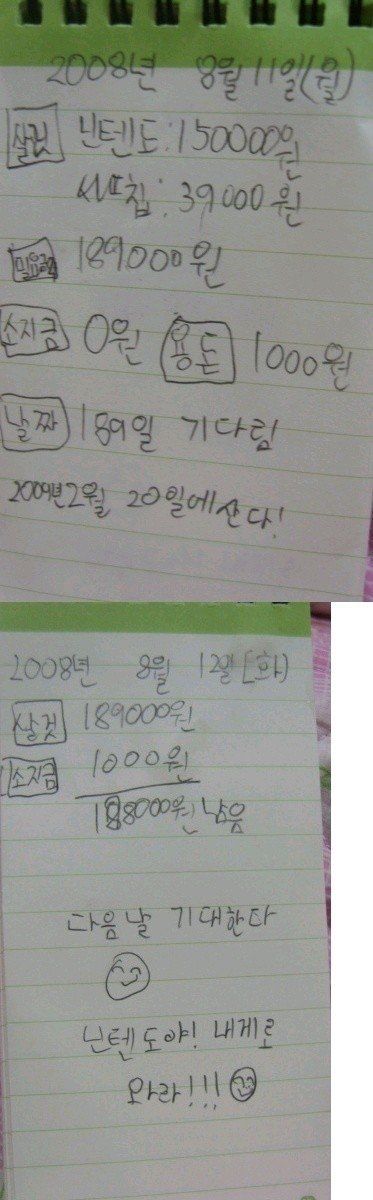 2008년 8월 11일(월)
살것 닌텐도:150000원
시따칩:39000원
필요금액 189000원
소지금 0원 용돈 1000원
날짜 189일 기다림
2009년2월 20일에산다!
2008년 8월 12일(화)
살것 189000원
소지금 1000원
188000원 남음
다음날 기대한다
닌텐도야! 내게로
와라!!!